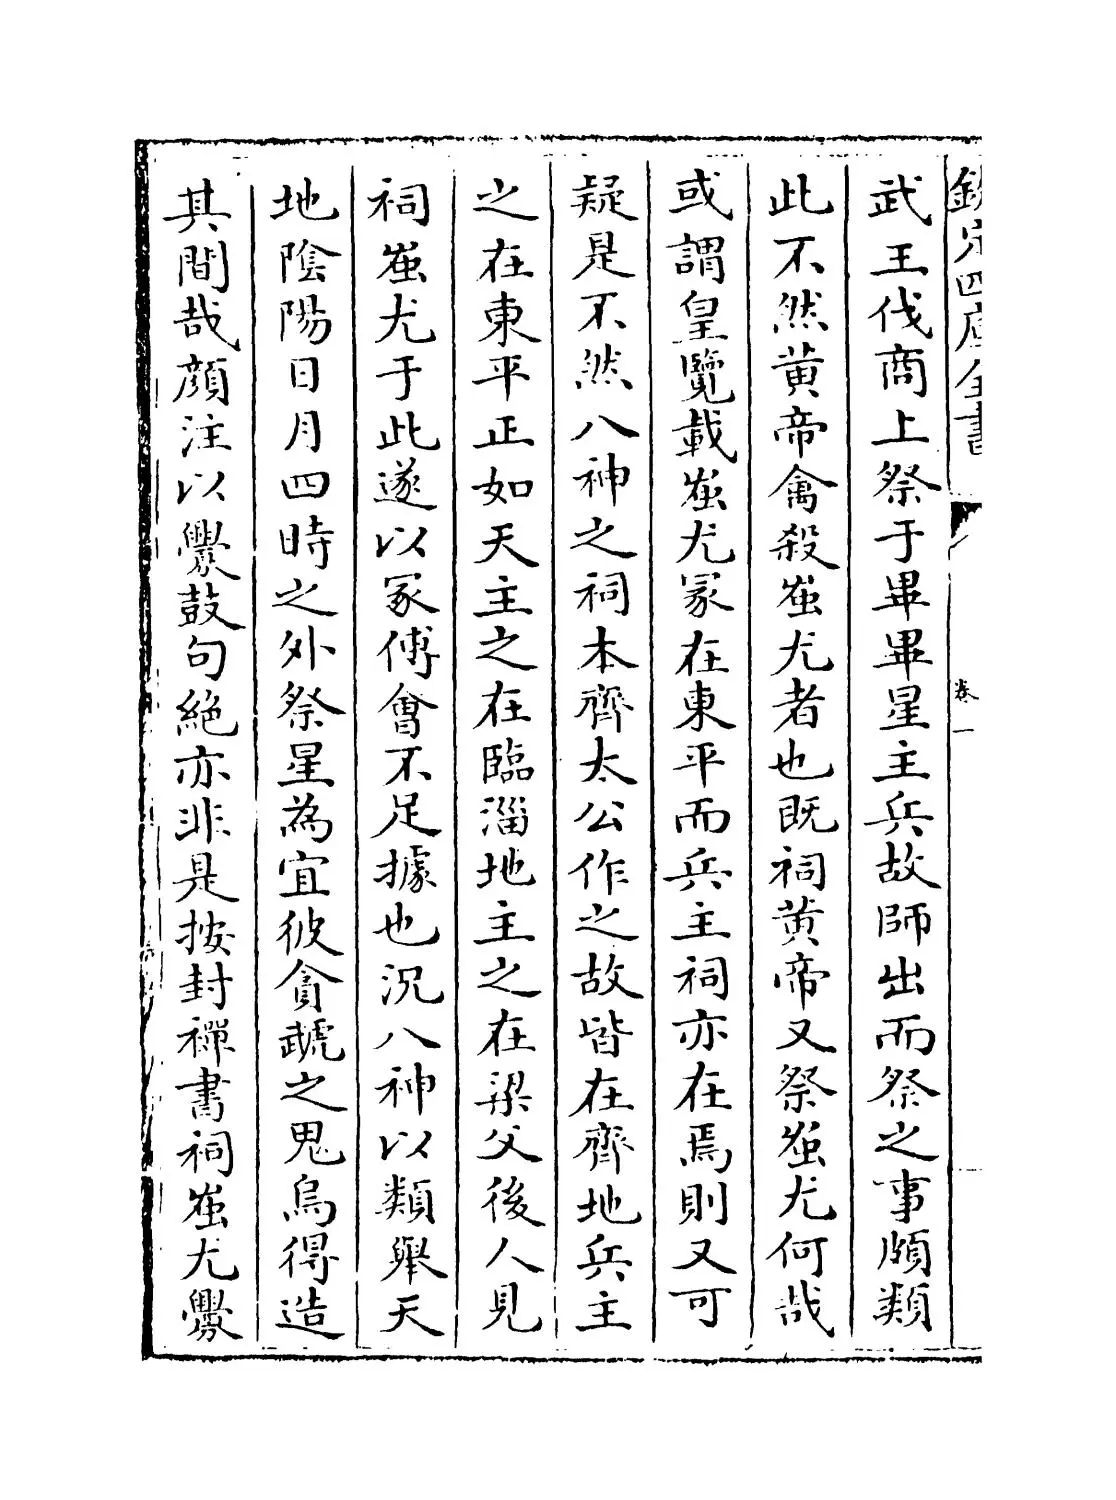 欽定四庫全書
卷一
武王伐商上祭于畢畢星主兵故師出而祭之事頗類
此不然黄帝禽殺蚩尤者也既祠黄帝又祭蚩尤何哉
或謂皇覽載蚩尤冢在東平而兵主祠亦在焉則又可
疑是不然八神之祠本齊太公作之故皆在齊地兵主
之在東平正如天主之在臨淄地主之在梁父後人見
祠蚩尤于此遂以冢傅會不足據也況八神以類舉天
地陰陽日月四時之外祭星為宜彼貪虣之鬼烏得造
其間哉顔注以釁鼓句絶亦非是按封禪書祠蚩尤釁